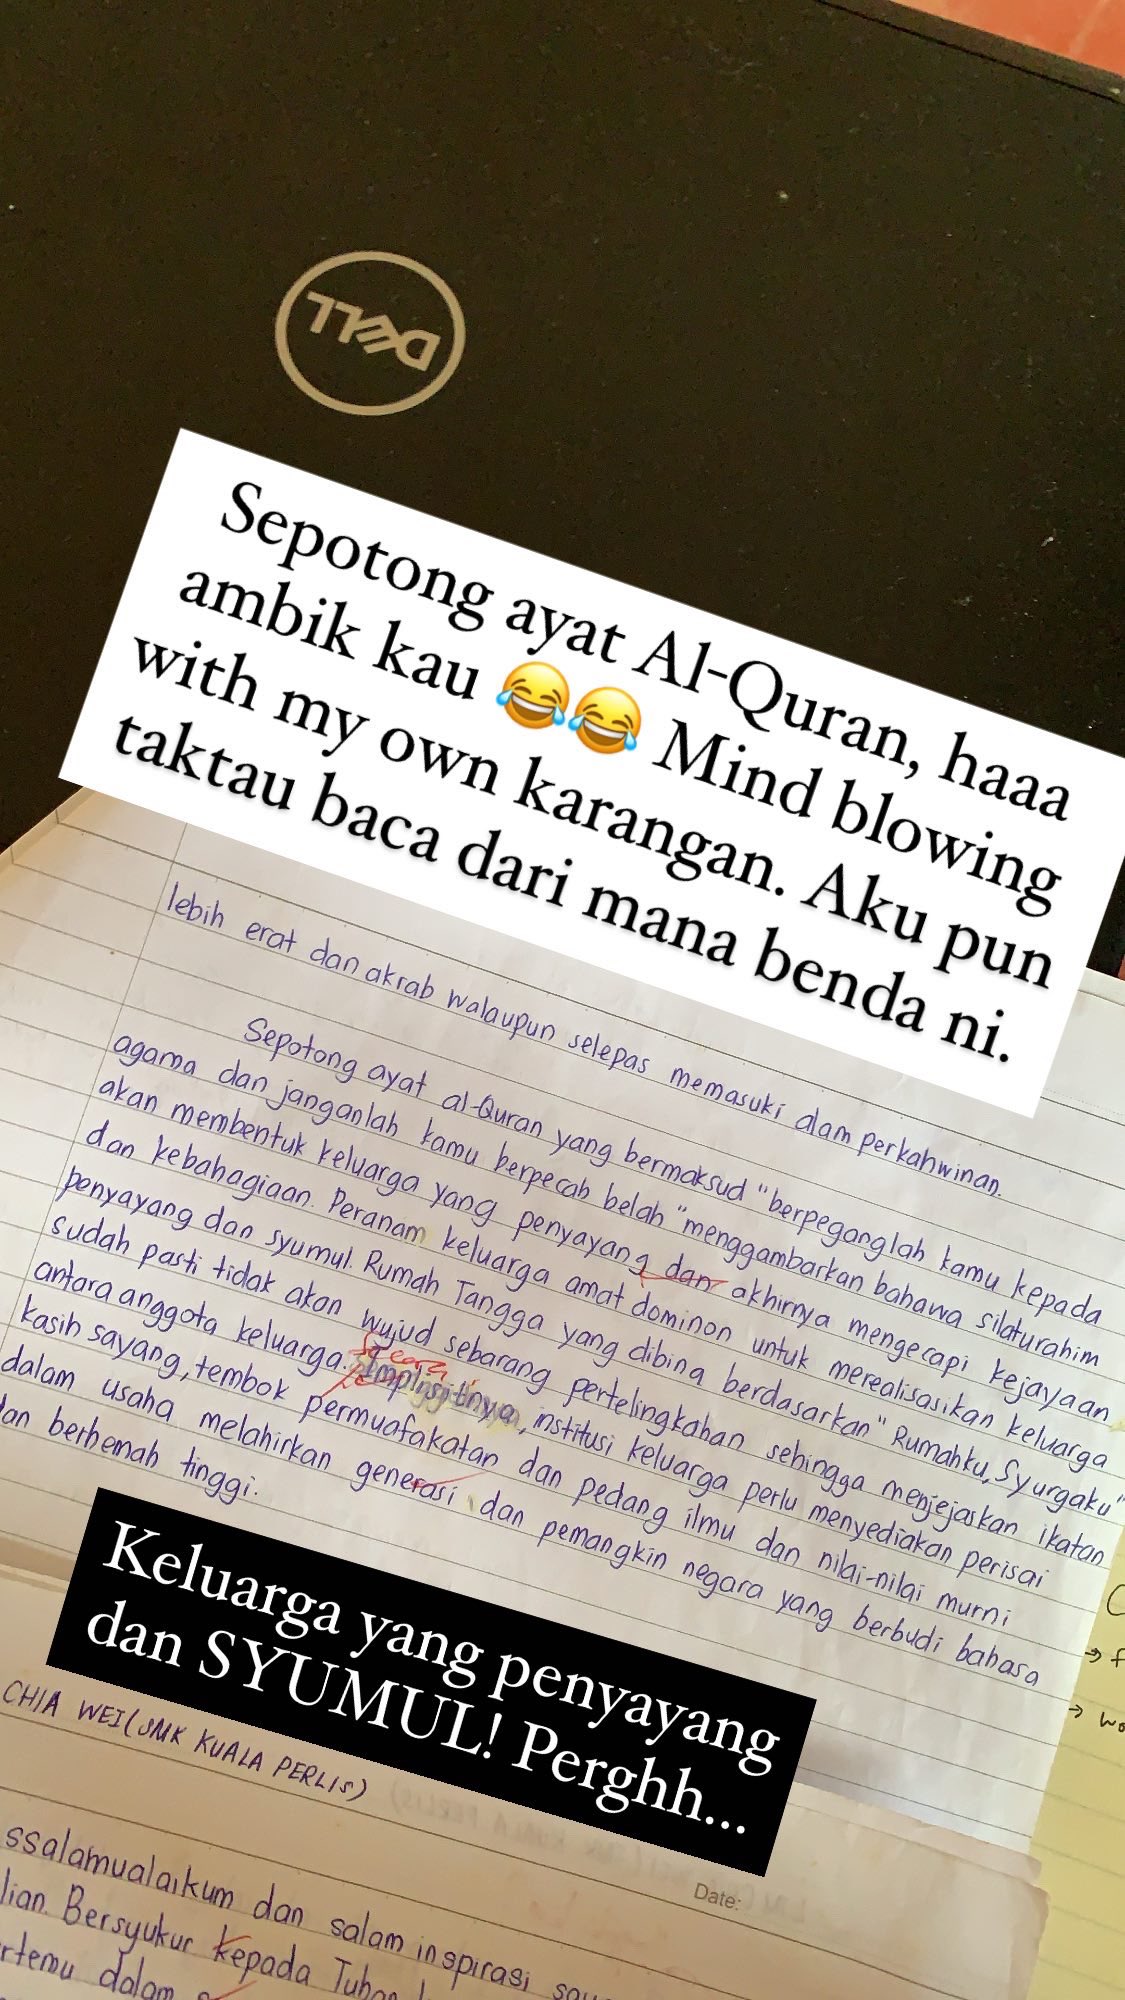 DELL
Sepotong ayat Al-Quran, haaa
ambik kau 😂😂 Mind blowing
with my own karangan. Aku pun
taktau baca dari mana benda ni.
lebih erat dan akrab walaupun selepas memasuki alam perkahwinan.
Sepotong ayat al-Quran yang bermaksud "berpeganglah kamu kepada
agama dan janganlah kamu berpecah belah "menggambarkan bahawa silaturahim
akan membentuk keluarga yang penyayang dan akhirnya mengecapi kejayaan
dan kebahagiaan. Peranam keluarga amat dominon untuk merealisasikan keluarga
penyayang dan syumul. Rumah Tangga yang dibina berdasarkan "Rumahku, Syurgaku"
sudah pasti tidak akan wujud sebarang pertelingkahan sehingga menjejaskan ikatan
antara anggota keluarga. secara Implisitnya, institusi keluarga perlu menyediakan perisai
kasih sayang, tembok permuafakatan dan pedang ilmu dan nilai-nilai murni
dalam usaha melahirkan generasi dan pemangkin negara yang berbudi bahasa
dan berhemah tinggi.
Keluarga yang penyayang
dan SYUMUL! Perghh...
CHIA WEI (SMK KUALA PERLIS)
Date:
ssalamualaikum dan salam inspirasi
lian. Bersyukur kepada Tuhan
rtemu dalam